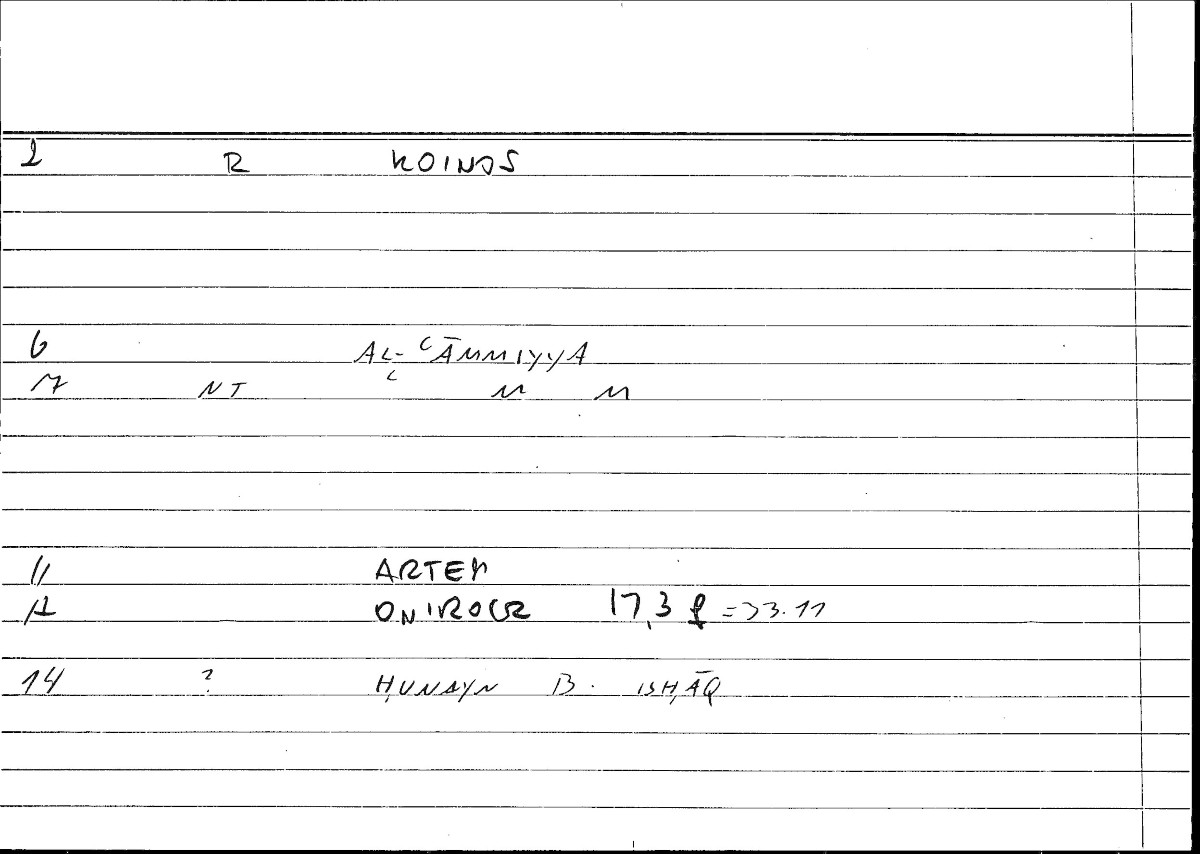 2 R KOINOS
6 AL-ʿĀMMIYYA
7 NT ʿ M M
11 ARTEM
12 ONIROCR 17,3 f = 33.11
14 ? ḤUNAYN B. ISḤĀQ